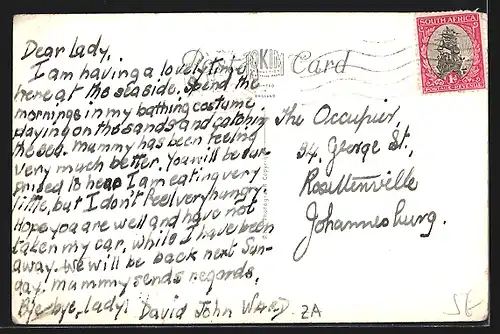 Dear lady,
I am having a lovely time
here at the seaside. Spend the
mornings in my bathing costume
playing on the sands and catching
the sea. Mummy has been feeling
very much better. You will be sur-
prised to hear I am eating very
little, but I don't feel very hungry.
Hope you are well and have not
taken my car, while I have been
away. We will be back next Sun-
day. Mummy sends regards.
Bye-bye, lady! David John WARD.
ZA
Card
SOUTH AFRICA
1D
POSTAGE REVENUE
The Occupier,
94, George St.,
Rosettenville
Johannesburg.